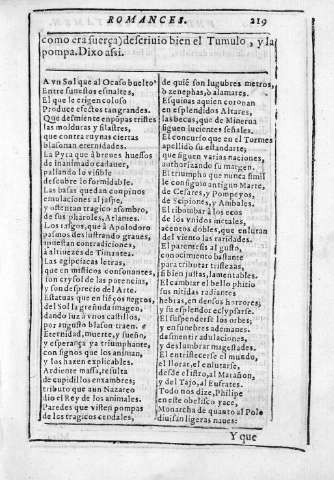 ROMANCES. 219
como era fuerça) descriuio bien el Tumulo, y la
pompa. Dixo assi.
A vn Sol que al Ocaso buelto
Entre funestos esmaltes,
El que le erigen coloso
Produce efectos tan grandes.
Que desmiente en pompas tristes
las molduras y filastres,
que contra ruynas ciertas
blasonan eternidades.
La Pyra que à breues huessos
de inanimado cadauer,
passando lo visible
descubre lo formidable.
Las basas que dan coupinos
emulaciones al jaspe,
y ostentan tragico assombro,
de sus pharoles, Atlantes.
Los rasgos, que à Apolodoro
pasmos des ilustrando graues,
apuestan contradiciones,
à altiuezes de Timantea.
Las egipciacas letras,
que en misticos consonantes,
son crysol de las potencias,
y son desprecio del Arte.
Estatuas que en lienços negros,
del Sol la greña da imagen,
dando luz à vnos castillos,
por augusto blason traen.
Eternidad, muerte, y sueño,
y esperança ya triumphante,
con signos que los animan,
y los hazen explicables.
Ardiente massa, resulta
de cupidillos enxambres;
tributo que aun Nazareo
dio el Rey de los animales.
Paredes que visten pompas
de los tragicos cendales,
de quiẽ son lugubres metros,
ò zenephas, ò alamares.
Esquinas a quien coronan
en esplendidos Altares,
las becas, que de Minerua
siguen lucientes señales.
El concurso que en el Tormes
apellido su estandarte,
que siguen varias naciones,
authorizando su margen.
El triumpho que nunca simil
le consiguio antiguo Marte,
de Cesares, y Pompeyos,
de Scipiones, y Anibales.
El ribombar à los ecos
de los vnidos metales,
acentos dobles, que enlutan
del viento las raridades.
El parentesis al gusto,
conocimiento bastante
para tributar tristezas,
si bien justas, lamentables.
El cambiar el bello phitio
sus nitidas radiantes
hebras, en densos horrores,
y su esplendor eclypsarse.
El suspenderse los orbes;
y en funebres ademanes,
desmentir adulaciones,
y deslumbrar magestades.
El entristecerse el mundo,
el llorar, el enlutarse,
desde el istro, al Marañon,
y del Tajo, al Eufrates.
Todo nos dize, Philipe
en este obelisco yace,
Monarcha de quanto al Polo
diuisan ligeras naues:
Y que